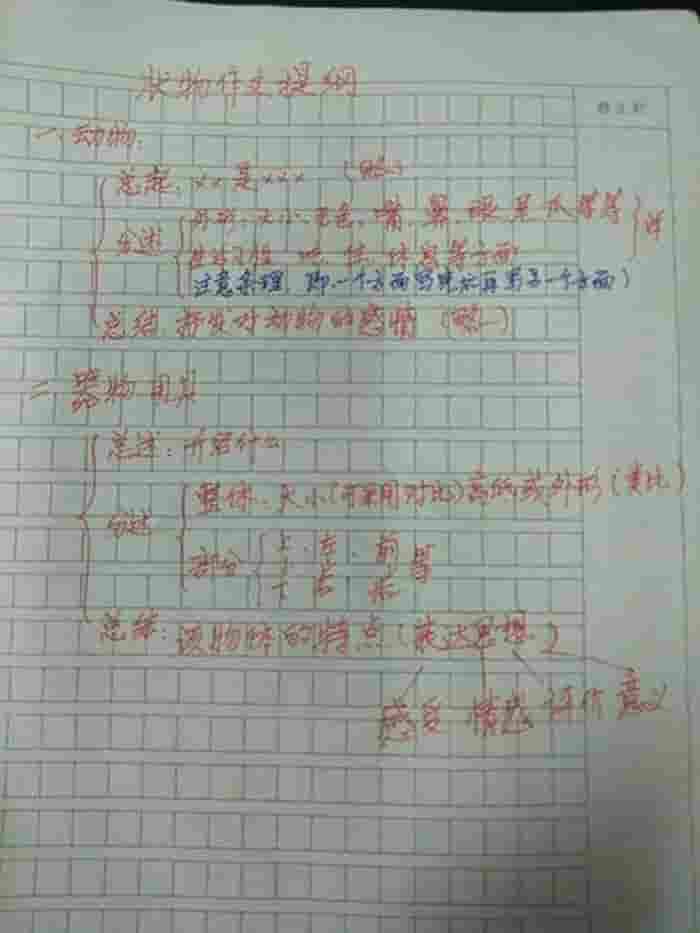 状物作文提纲
一、动物:
总起: xx是xxx (略)
分述 外形、大小、毛色、嘴、鼻、眼、耳、爪等等 详
生活习性 吃、住、休息等方面
注意条理, 即一个方面写完后再写另一个方面)
总结 抒发对动物的感情 (略)
二 器物用具
总述: 介绍什么
分述 整体、大小(可采用对比)高低或外形(类比)
部分 上、左、前 等
下 右 后
总结: 该物体的特点(表达思想)
感受 情感 评价 意义